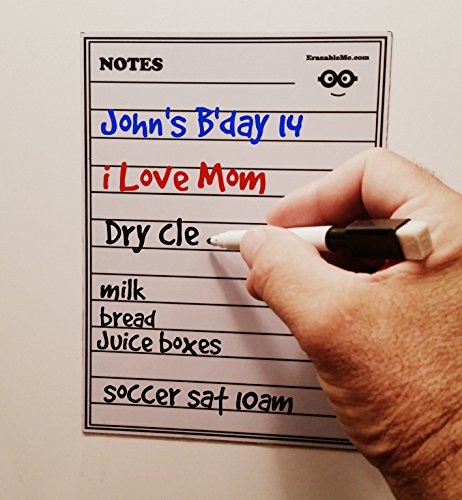 ErasableMe.com
NOTES
John's B'day 14
i Love Mom
Dry Cle
milk
bread
Juice boxes
soccer sat 10am